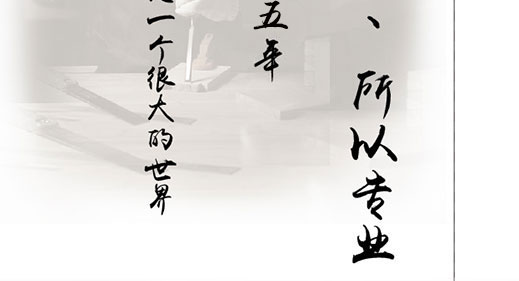 、所以专业
五年
一个很大的世界